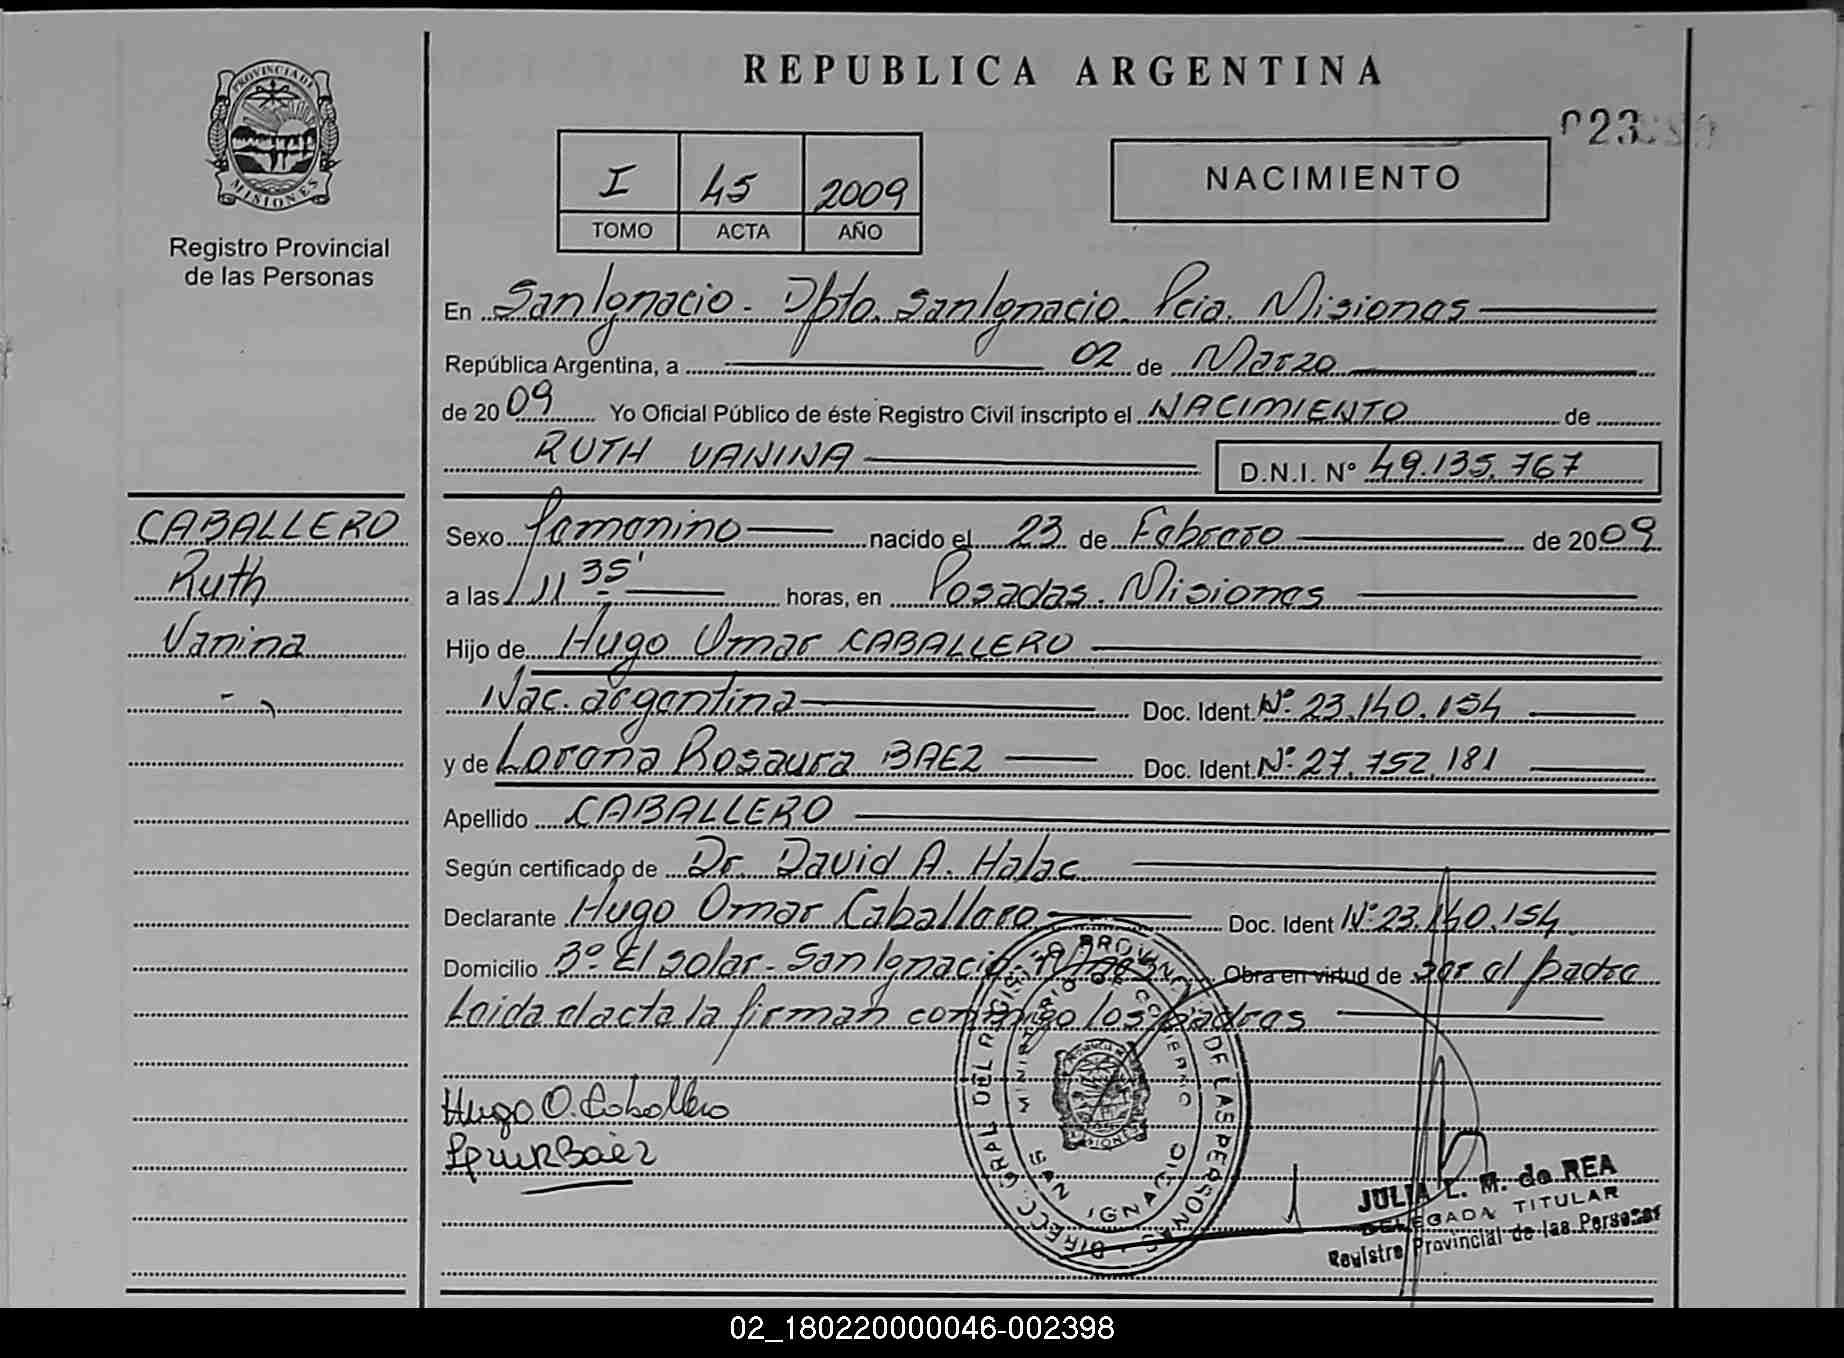 REPUBLICA ARGENTINA
023
PROVINCIA DE
MISIONES
Registro Provincial
de las Personas
I 45 2009
TOMO ACTA AÑO
NACIMIENTO
En San Ignacio - Dpto. San Ignacio. Pcia. Misiones
República Argentina, a 02 de Marzo
de 2009 Yo Oficial Público de éste Registro Civil inscripto el NACIMIENTO de
RUTH VANINA D.N.I. N° 49.135.767
CABALLERO
Ruth
Vanina
Sexo femenino nacido el 23 de Febrero de 2009
a las 11 35' horas, en Posadas. Misiones
Hijo de Hugo Omar CABALLERO
Nac. argentina Doc. Ident. N° 23.140.154
y de Lorena Rosaura BAEZ Doc. Ident. N° 27.752.181
Apellido CABALLERO
Según certificado de Dr. David A. Halac
Declarante Hugo Omar Caballero Doc. Ident N° 23.140.154
Domicilio B° El solar - San Ignacio Obra en virtud de ser el padre
Leida el acta la firman conmigo los padres
Hugo O. Caballero
Baez
DIRECC. GRAL. DEL REGISTRO PROVINCIAL DE LAS PERSONAS
MINISTERIO DE GOBIERNO
SAN IGNACIO
JULIA L. M. de REA
DELEGADA TITULAR
Registro Provincial de las Personas
02_180220000046-002398